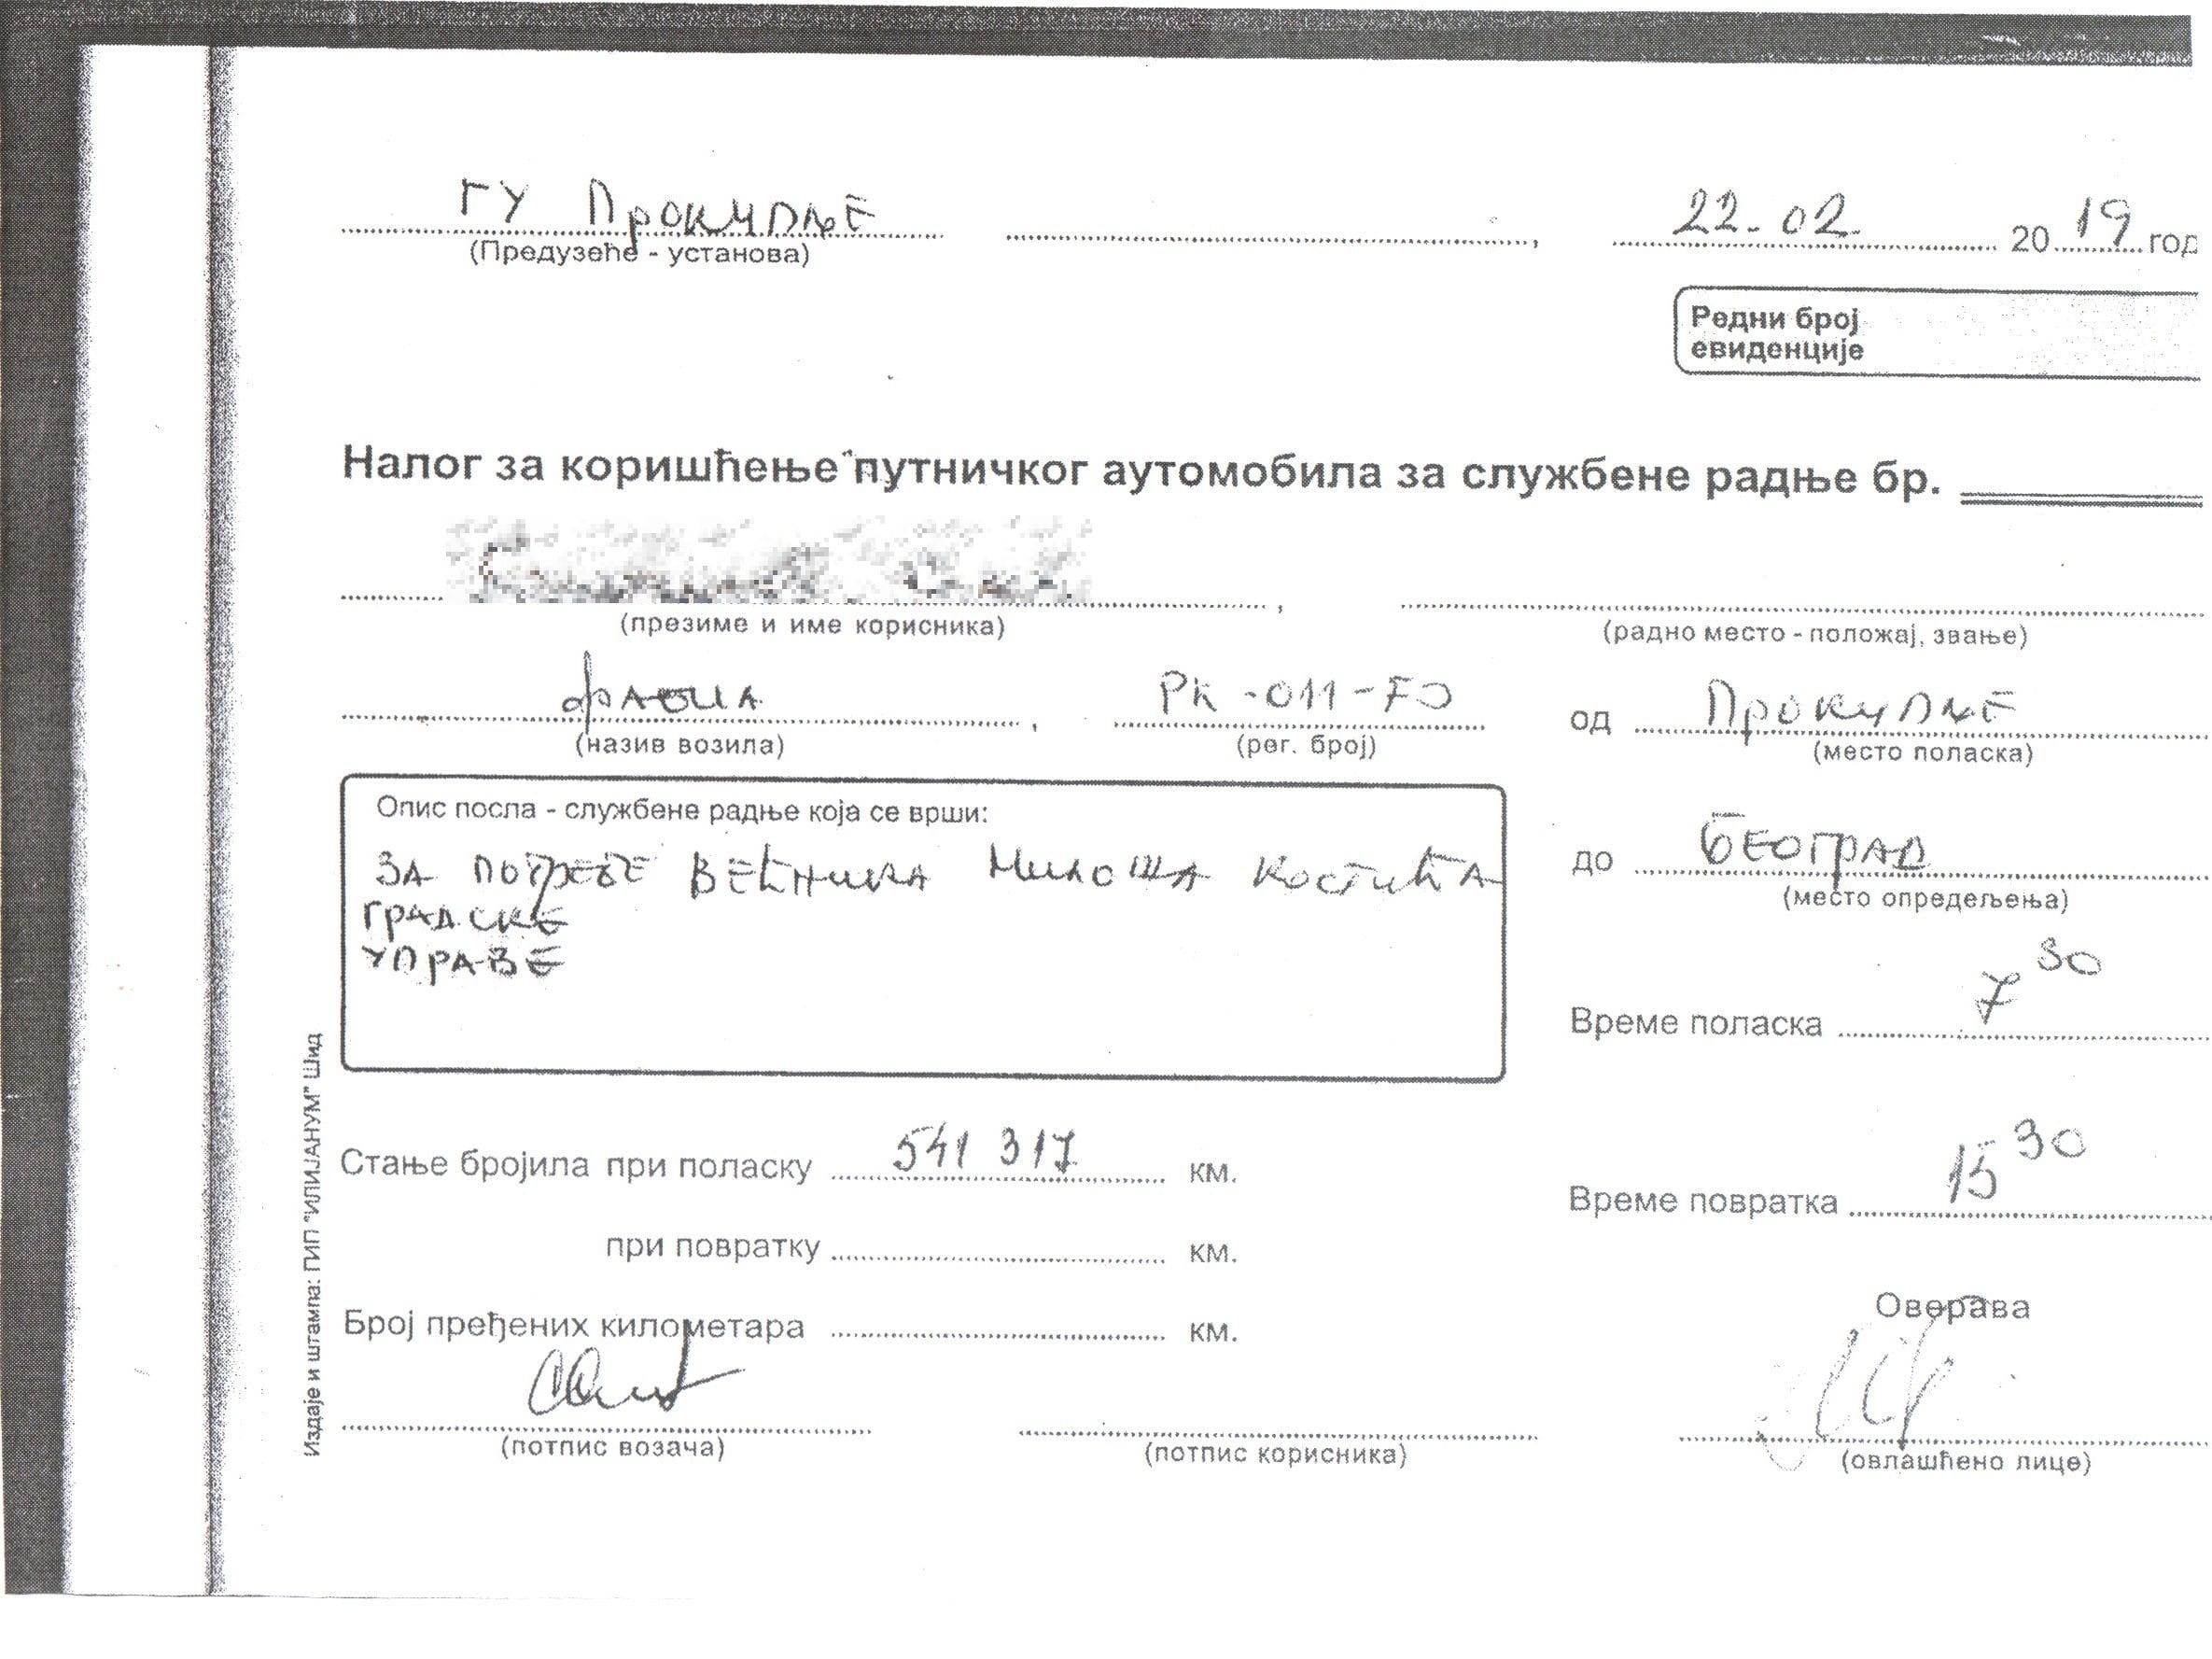 ГУ Прокупље 22.02. 2019 год
(Предузеће - установа)
Редни број
евиденције
Налог за коришћење путничког аутомобила за службене радње бр.
(презиме и име корисника) (радно место - положај, звање)
РК-011- од Прокупље
(назив возила) (рег. број) (место поласка)
Опис посла - службене радње која се врши:
ЗА ПОТРЕБЕ ВЕЋНИКА МИЛОША КОСТИЋА
ГРАДСКЕ
УПРАВЕ
до БЕОГРАД
(место опредељења)
Време поласка 7 30
Стање бројила при поласку 541 317 км.
Време повратка 15 30
при повратку км.
Број пређених километара км.
Оверава
(потпис возача) (потпис корисника) (овлашћено лице)
Издаје и штампа: ГИП "ИЛИЈАНУМ" Шид